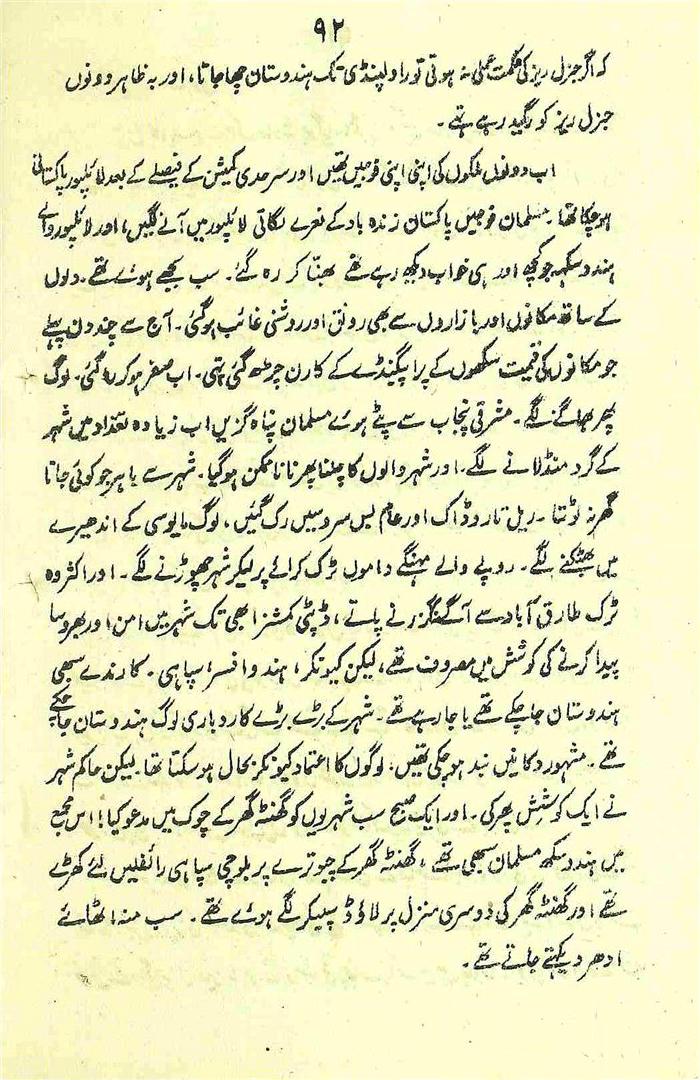 ۹۲
کہ اگر جنرل ریز کی حکمت عملی نہ ہوتی تو راولپنڈی تک ہندوستان چھا جاتا، اور بہ ظاہر دونوں
جنرل ریز کو رگید رہے تھے۔
اب دونوں ملکوں کی اپنی اپنی فوجیں تھیں اور سرحدی کمیشن کے فیصلے کے بعد لائلپور پاکستانی
ہوچکا تھا۔ مسلمان فوجیں پاکستان زندہ باد کے نعرے لگاتی لائلپور میں آنے لگیں، اور لائلپور والے
ہندو سکھ جو کچھ اور ہی خواب دیکھ رہے تھے بھنّا کر رہ گئے۔ سب بجھے ہوئے تھے۔ دلوں
کے ساتھ مکانوں اور بازاروں سے بھی رونق اور روشنی غائب ہوگئی۔ آج سے چند دن پہلے
جو مکانوں کی قیمت سکھوں کے پراپگینڈے کے کارن چڑھ گئی تھی۔ اب صفر ہو کر رہ گئی۔ لوگ
پھر بھاگنے لگے۔ مشرقی پنجاب سے پٹے ہوئے مسلمان پناہ گزیں اب زیادہ تعداد میں شہر
کے گرد منڈلانے لگے۔ اور شہر والوں کا چلنا پھرنا ناممکن ہوگیا۔ شہر سے باہر جو کوئی جاتا
گھر نہ لوٹتا۔ ریل تار و ڈاک اور عام بس سروسیں رک گئیں، لوگ مایوسی کے اندھیرے
میں بھٹکنے لگے۔ روپے والے مہنگے داموں ٹرک کرائے پر لیکر شہر چھوڑنے لگے۔ اور اکثر وہ
ٹرک طارق آباد سے آگے نہ گزرنے پاتے، ڈپٹی کمشنر ابھی تک شہر میں امن اور بھروسا
پیدا کرنے کی کوشش میں مصروف تھے، لیکن کیونکر، ہندو افسر سپاہی۔ کارندے سبھی
ہندوستان جاچکے تھے یا جا رہے تھے۔ شہر کے بڑے بڑے کاروباری لوگ ہندوستان جا چکے
تھے۔ مشہور دکانیں بند ہو چکی تھیں۔ لوگوں کا اعتماد کیونکر بحال ہوسکتا تھا۔ لیکن حاکم شہر
نے ایک کوشش پھر کی۔ اور ایک صبح سب شہریوں کو گھنٹہ گھر کے چوک میں مدعو کیا! اس مجمع
میں ہندو سکھ مسلمان سبھی تھے، گھنٹہ گھر کے چبوترے پر بلوچی سپاہی رائفلیں لئے کھڑے
تھے اور گھنٹہ گھر کی دوسری منزل پر لاؤڈ سپیکر لگے ہوئے تھے۔ سب منہ اٹھائے
ادھر دیکھتے جاتے تھے۔